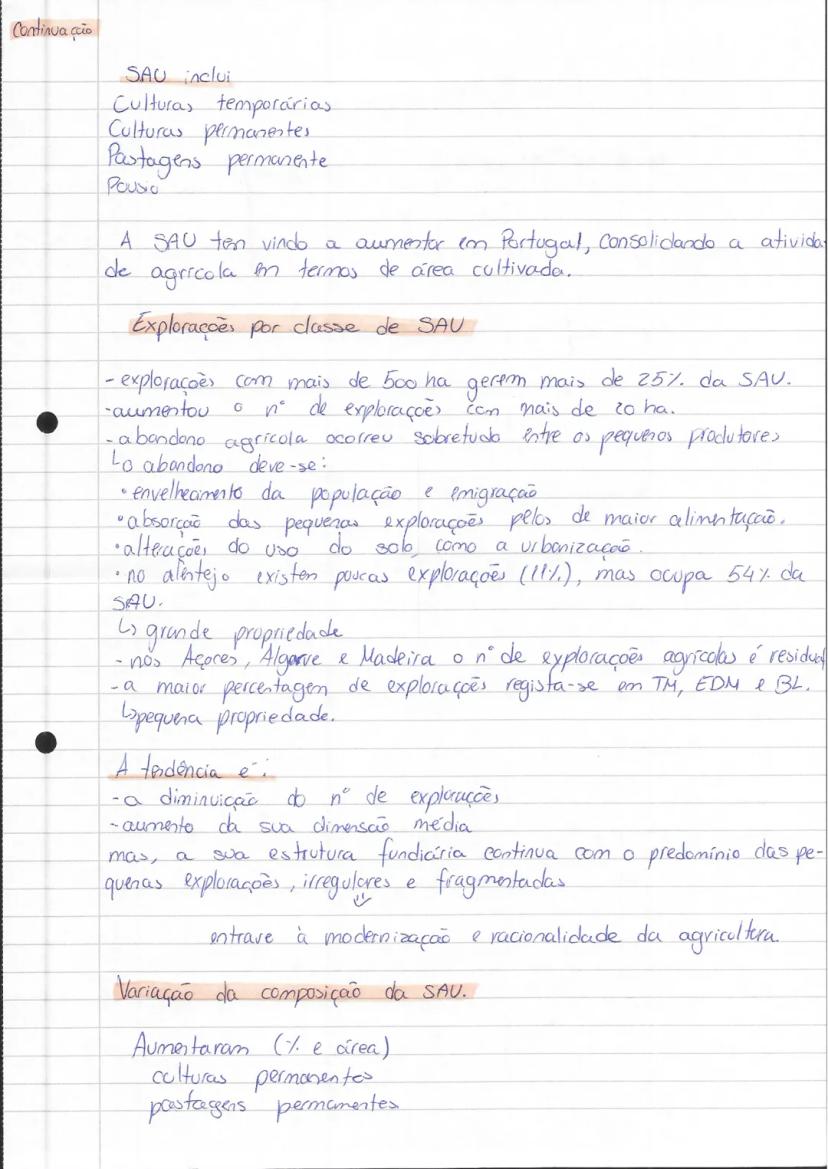 Continuação
SAU inclui
Culturas temporárias
Culturas permanentes
Pastagens permanente
Pousio
A SAU tem vindo a aumentar em Portugal, consolidando a ativida
de agrícola em termos de área cultivada.
Explorações por classe de SAU
- explorações com mais de 500 ha gerem mais de 25% da SAU.
- aumentou o nº de explorações com mais de 20 ha.
- abandono agrícola ocorreu sobretudo entre os pequenos produtores
↳ o abandono deve-se:
• envelhecimento da população e emigração
• absorção das pequenas explorações pelos de maior alimentação.
• alterações do uso do solo, como a urbonização.
• no alentejo existem poucas explorações (11%), mas ocupa 54% da
SAU.
↳ grande propriedade
- nos Açores, Algarve e Madeira o nº de explorações agrícolas é residual
- a maior percentagem de explorações regista-se em TM, EDM e BL.
↳ pequena propriedade.
A tendência é:
- a diminuição do nº de explorações
- aumento da sua dimensão média
mas, a sua estrutura fundiária continua com o predomínio das pe-
quenas explorações, irregulares e fragmentadas
entrave à modernização e racionalidade da agricultura.
Variação da composição da SAU.
Aumentaram (% e área)
culturas permanentes
pastagens permamentes